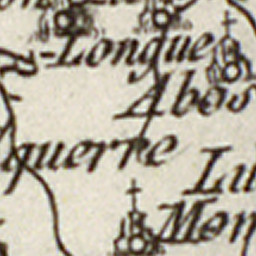 -Longue
Abos
guerre
Lu
Mon